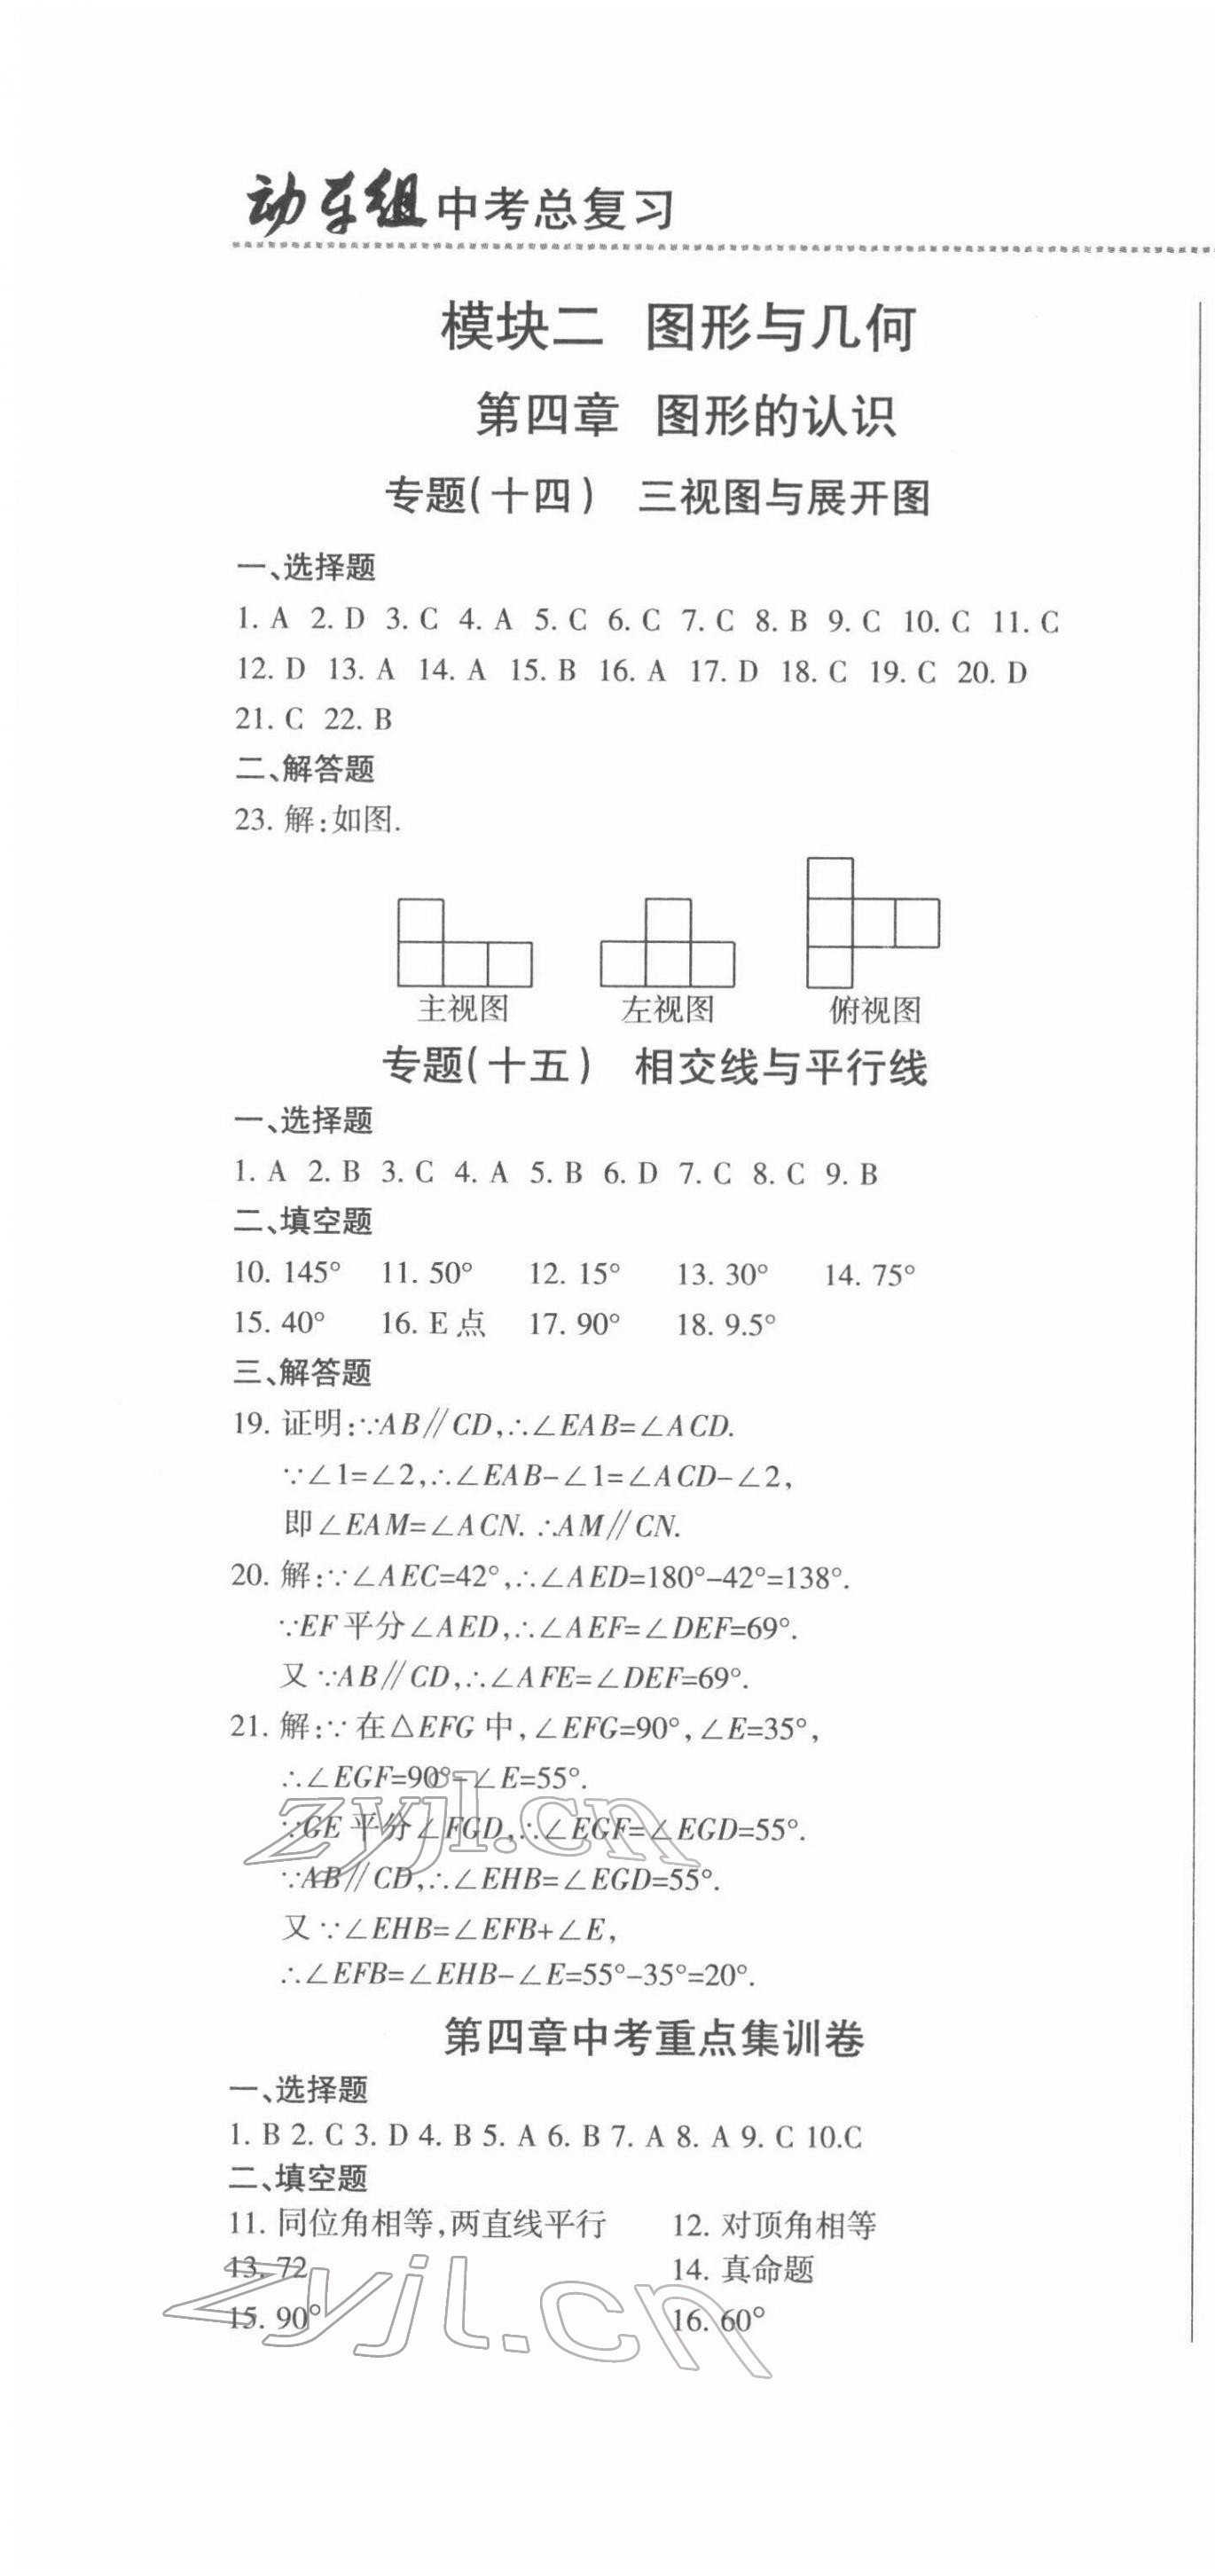 动车组中考总复习
模块二 图形与几何
第四章 图形的认识
专题(十四) 三视图与展开图
一、选择题
1. A 2. D 3. C 4. A 5. C 6. C 7. C 8. B 9. C 10. C 11. C
12. D 13. A 14. A 15. B 16. A 17. D 18. C 19. C 20. D
21. C 22. B
二、解答题
23. 解:如图.
主视图 左视图 俯视图
专题(十五) 相交线与平行线
一、选择题
1. A 2. B 3. C 4. A 5. B 6. D 7. C 8. C 9. B
二、填空题
10. 145° 11. 50° 12. 15° 13. 30° 14. 75°
15. 40° 16. E 点 17. 90° 18. 9.5°
三、解答题
19. 证明:∵AB∥CD,∴∠EAB=∠ACD.
∵∠1=∠2,∴∠EAB-∠1=∠ACD-∠2,
即∠EAM=∠ACN. ∴AM∥CN.
20. 解:∵∠AEC=42°,∴∠AED=180°-42°=138°.
∵EF 平分∠AED,∴∠AEF=∠DEF=69°.
又∵AB∥CD,∴∠AFE=∠DEF=69°.
21. 解:∵在△EFG 中,∠EFG=90°,∠E=35°,
∴∠EGF=90°-∠E=55°.
∵GE 平分∠FGD,∴∠EGF=∠EGD=55°.
∵AB∥CD,∴∠EHB=∠EGD=55°.
又∵∠EHB=∠EFB+∠E,
∴∠EFB=∠EHB-∠E=55°-35°=20°.
zyjl.cn
第四章中考重点集训卷
一、选择题
1. B 2. C 3. D 4. B 5. A 6. B 7. A 8. A 9. C 10.C
二、填空题
11. 同位角相等,两直线平行 12. 对顶角相等
13. 72 14. 真命题
15. 90° 16. 60°
zyjl.cn